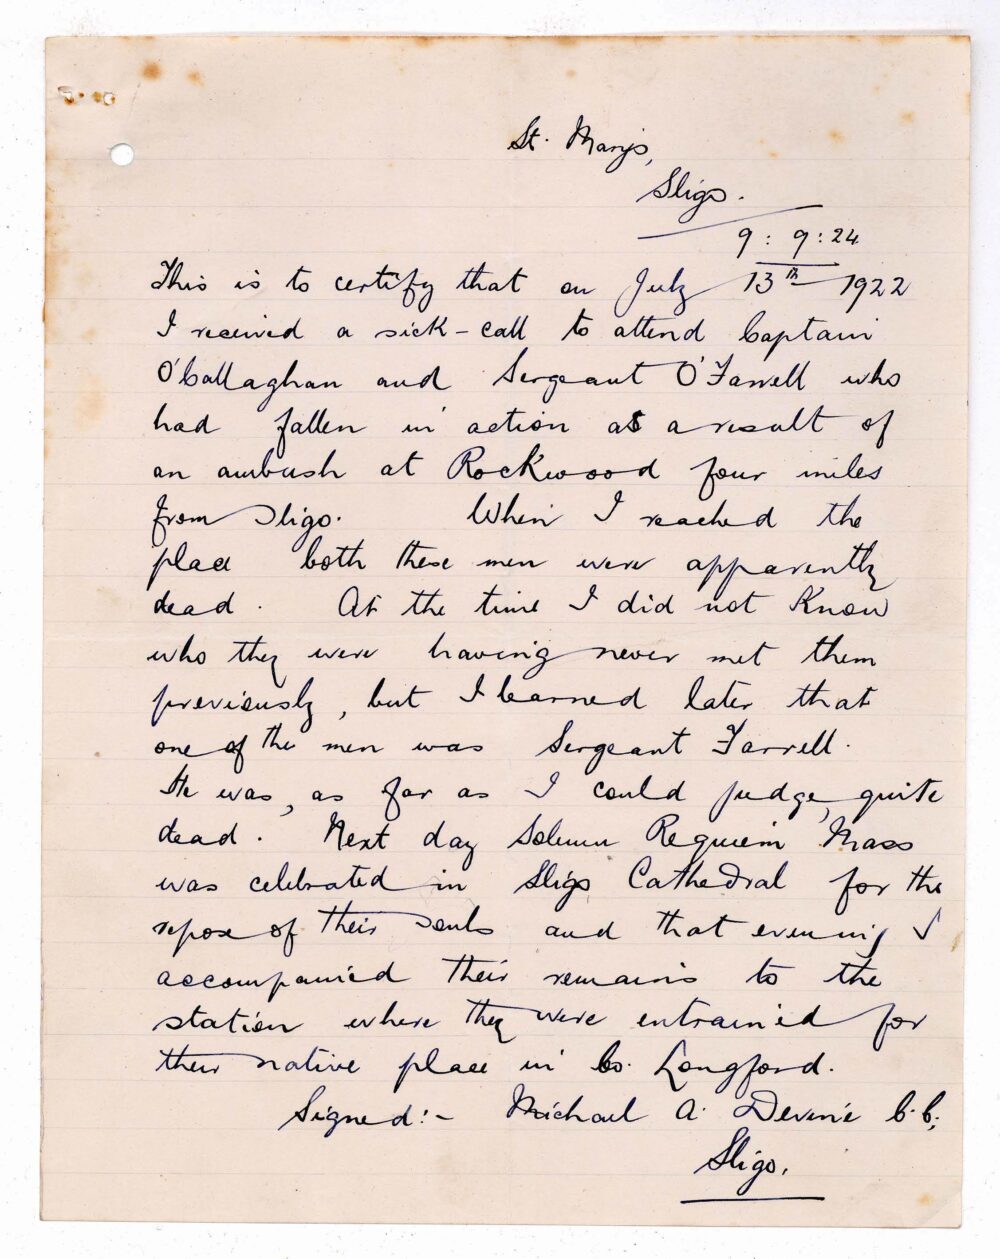 St. Mary's,
Sligo.
9 : 9 : 24
This is to certify that on July 13th 1922
I received a sick-call to attend Captain
O'Callaghan and Sergeant O'Farrell who
had fallen in action as a result of
an ambush at Rockwood four miles
from Sligo. When I reached the
place both these men were apparently
dead. At the time I did not know
who they were having never met them
previously, but I learned later that
one of the men was Sergeant Farrell.
He was, as far as I could judge, quite
dead. Next day Solemn Requiem Mass
was celebrated in Sligo Cathedral for the
repose of their souls and that evening I
accompanied their remains to the
station where they were entrained for
their native place in Co. Longford.
Signed:- Michael A. Devine C.C.
Sligo.